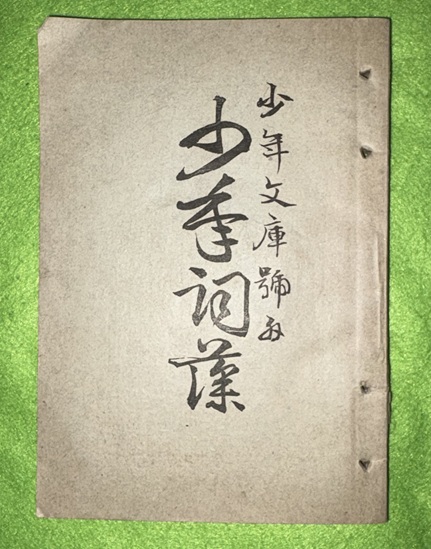 少年文庫號外
少年詞藻